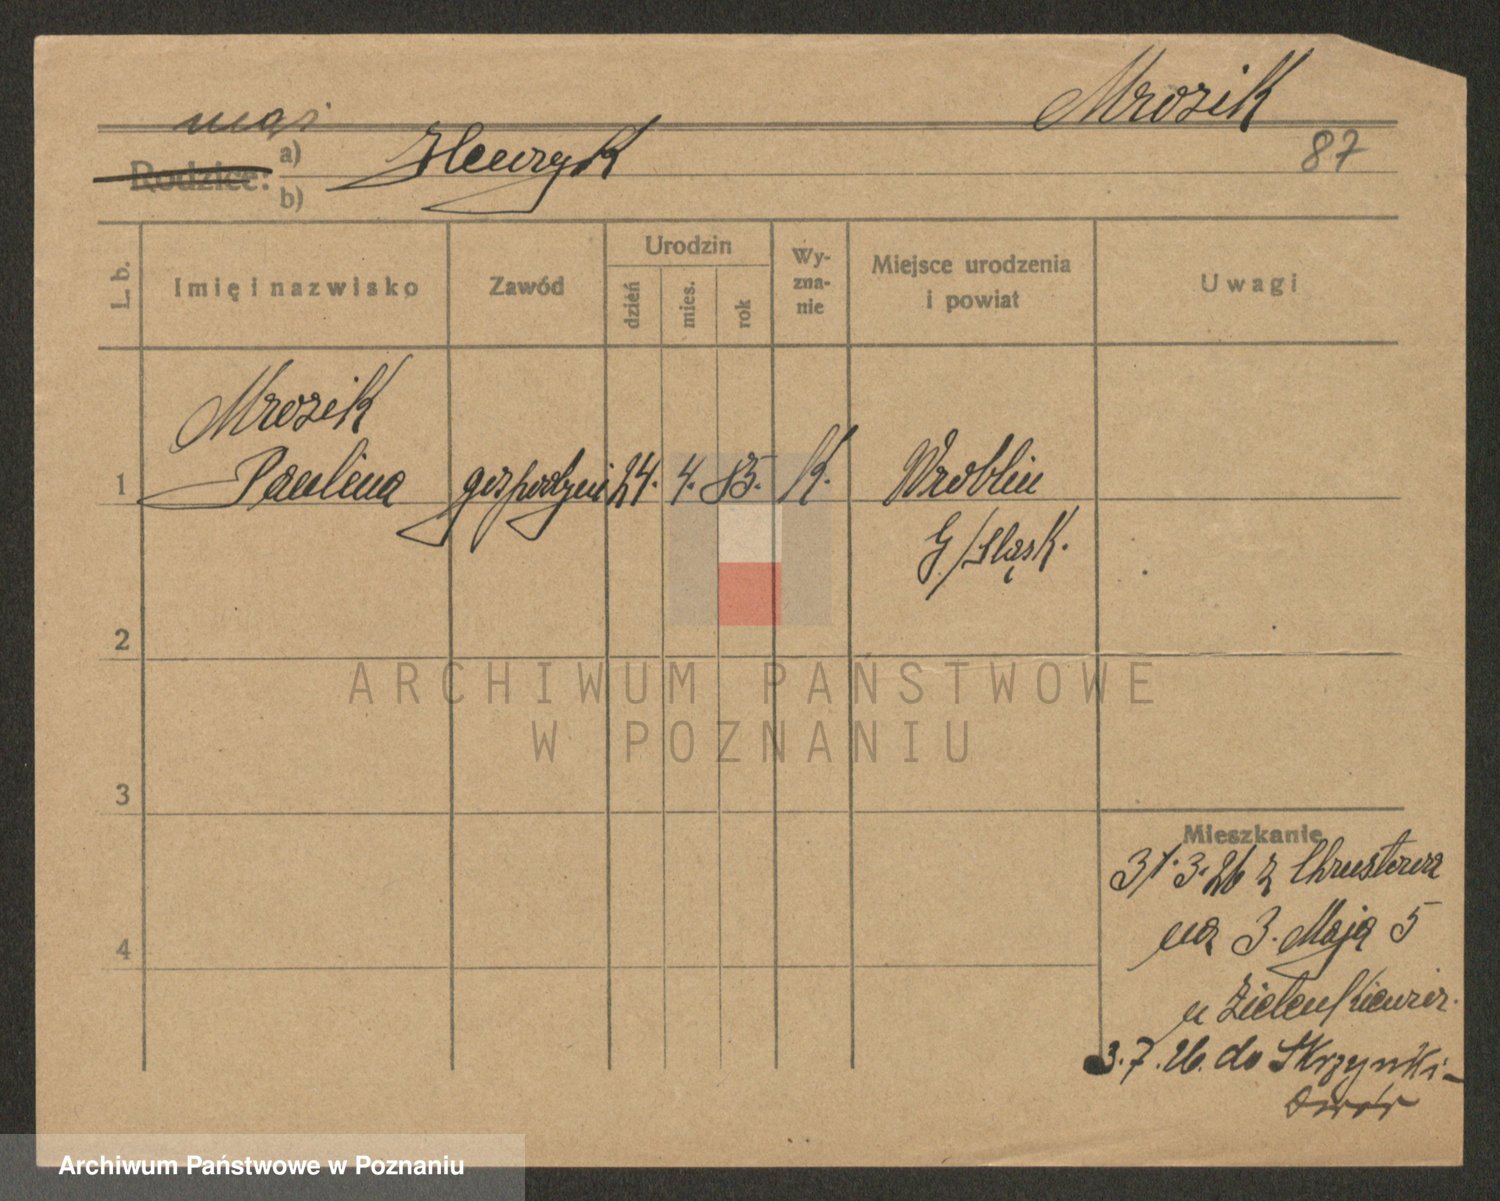 Mrozik
mąż
87
Rodzice:
a) Henryk
b)
L. b.
Imię i nazwisko
Zawód
Urodzin
dzień
mies.
rok
Wy-
zna-
nie
Miejsce urodzenia
i powiat
Uwagi
Mrozik
1 Paulina gospodyni 24. 4. 85. K. Wroblin
G/Śląsk.
2
ARCHIWUM PAŃSTWOWE
W POZNANIU
3
Mieszkanie
31.3.26 z Chrustowa
na 3. Maja 5
4
u
3.7.26. do Skrzynki-
dwór
Archiwum Państwowe w Poznaniu